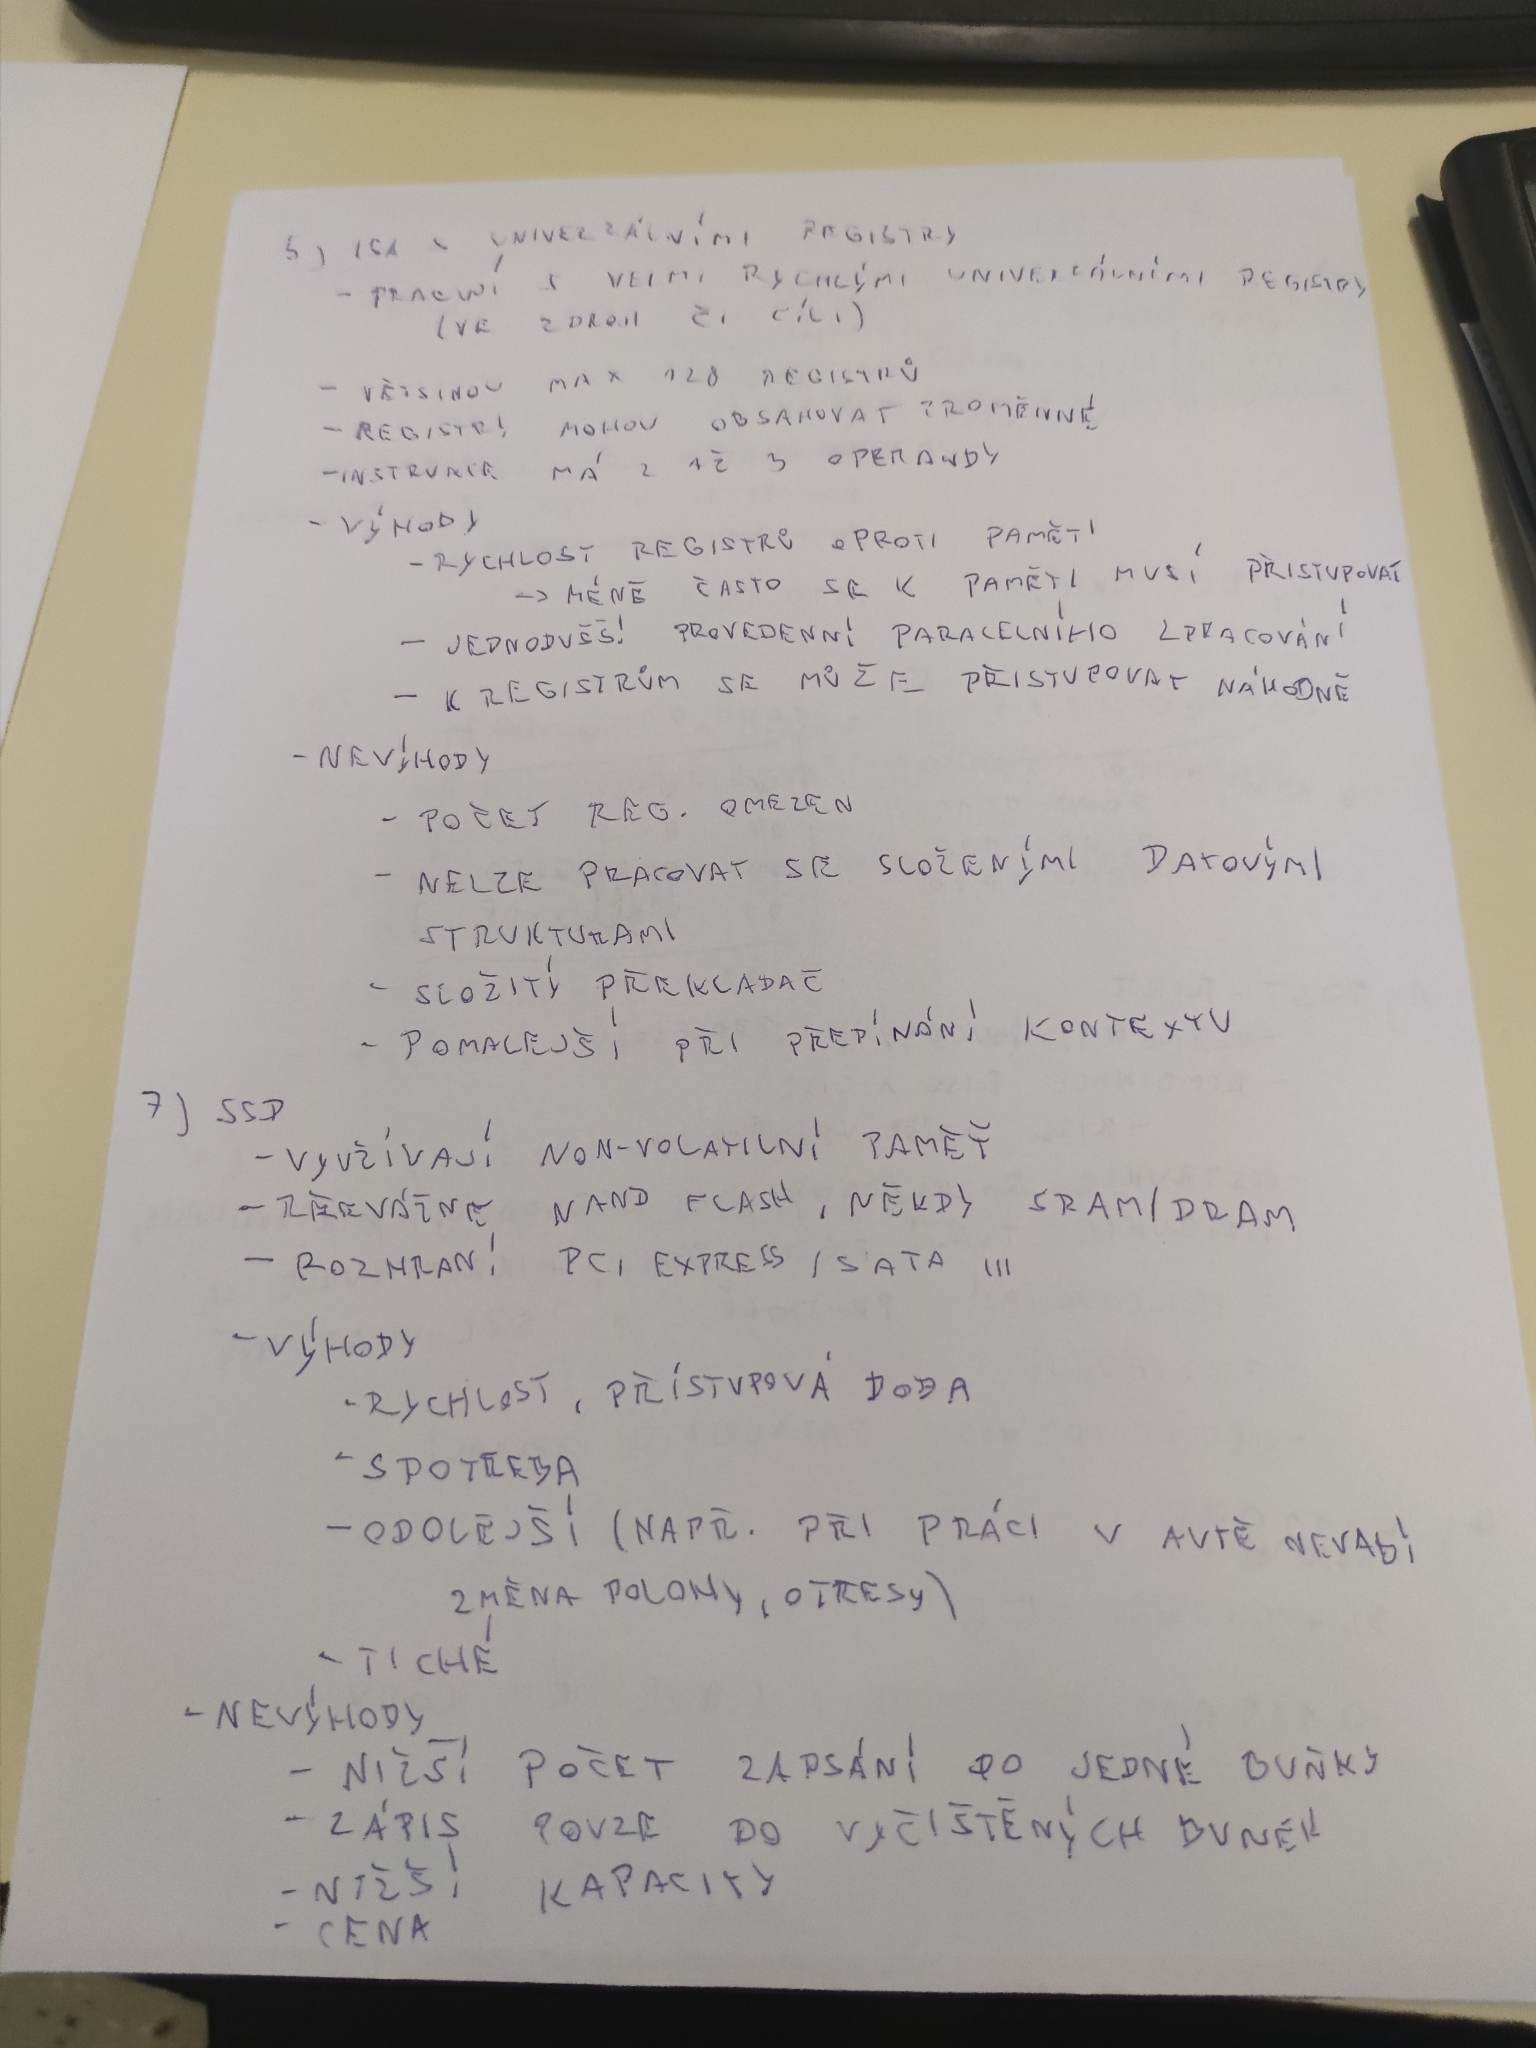 5) ISA S UNIVERZÁLNÍMI REGISTRY
- PRACUJÍ S VELMI RYCHLÝMI UNIVERZÁLNÍMI REGISTRY
(VE ZDROJI ČI CÍLI)
- VĚTŠINOU MAX 128 REGISTRŮ
- REGISTRY MOHOU OBSAHOVAT PROMĚNNÉ
- INSTRUKCE MÁ 2 AŽ 3 OPERANDY
- VÝHODY
- RYCHLOST REGISTRŮ OPROTI PAMĚTI
-> MÉNĚ ČASTO SE K PAMĚTI MUSÍ PŘISTUPOVAT
- JEDNODUŠŠÍ PROVEDENNÍ PARALELNÍHO ZPRACOVÁNÍ
- K REGISTRŮM SE MŮŽE PŘISTUPOVAT NÁHODNĚ
- NEVÝHODY
- POČET REG. OMEZEN
- NELZE PRACOVAT SE SLOŽENÝMI DATOVÝMI
STRUKTURAMI
- SLOŽITÝ PŘEKLADAČ
- POMALEJŠÍ PŘI PŘEPÍNÁNÍ KONTEXTU
7) SSD
- VYUŽÍVAJÍ NON-VOLATILNÍ PAMĚŤ
- PŘEVÁŽNĚ NAND FLASH, NĚKDY SRAM/DRAM
- ROZHRANÍ PCI EXPRESS / SATA III
- VÝHODY
- RYCHLOST, PŘÍSTUPOVÁ DOBA
- SPOTŘEBA
- ODOLEJŠÍ (NAPŘ. PŘI PRÁCI V AUTĚ NEVADÍ
ZMĚNA POLOHY, OTŘESY)
- TICHÉ
- NEVÝHODY
- NIŽŠÍ POČET ZAPSÁNÍ DO JEDNÉ BUŇKY
- ZÁPIS POUZE DO VYČIŠTĚNÝCH BUNĚK
- NIŽŠÍ KAPACITY
- CENA